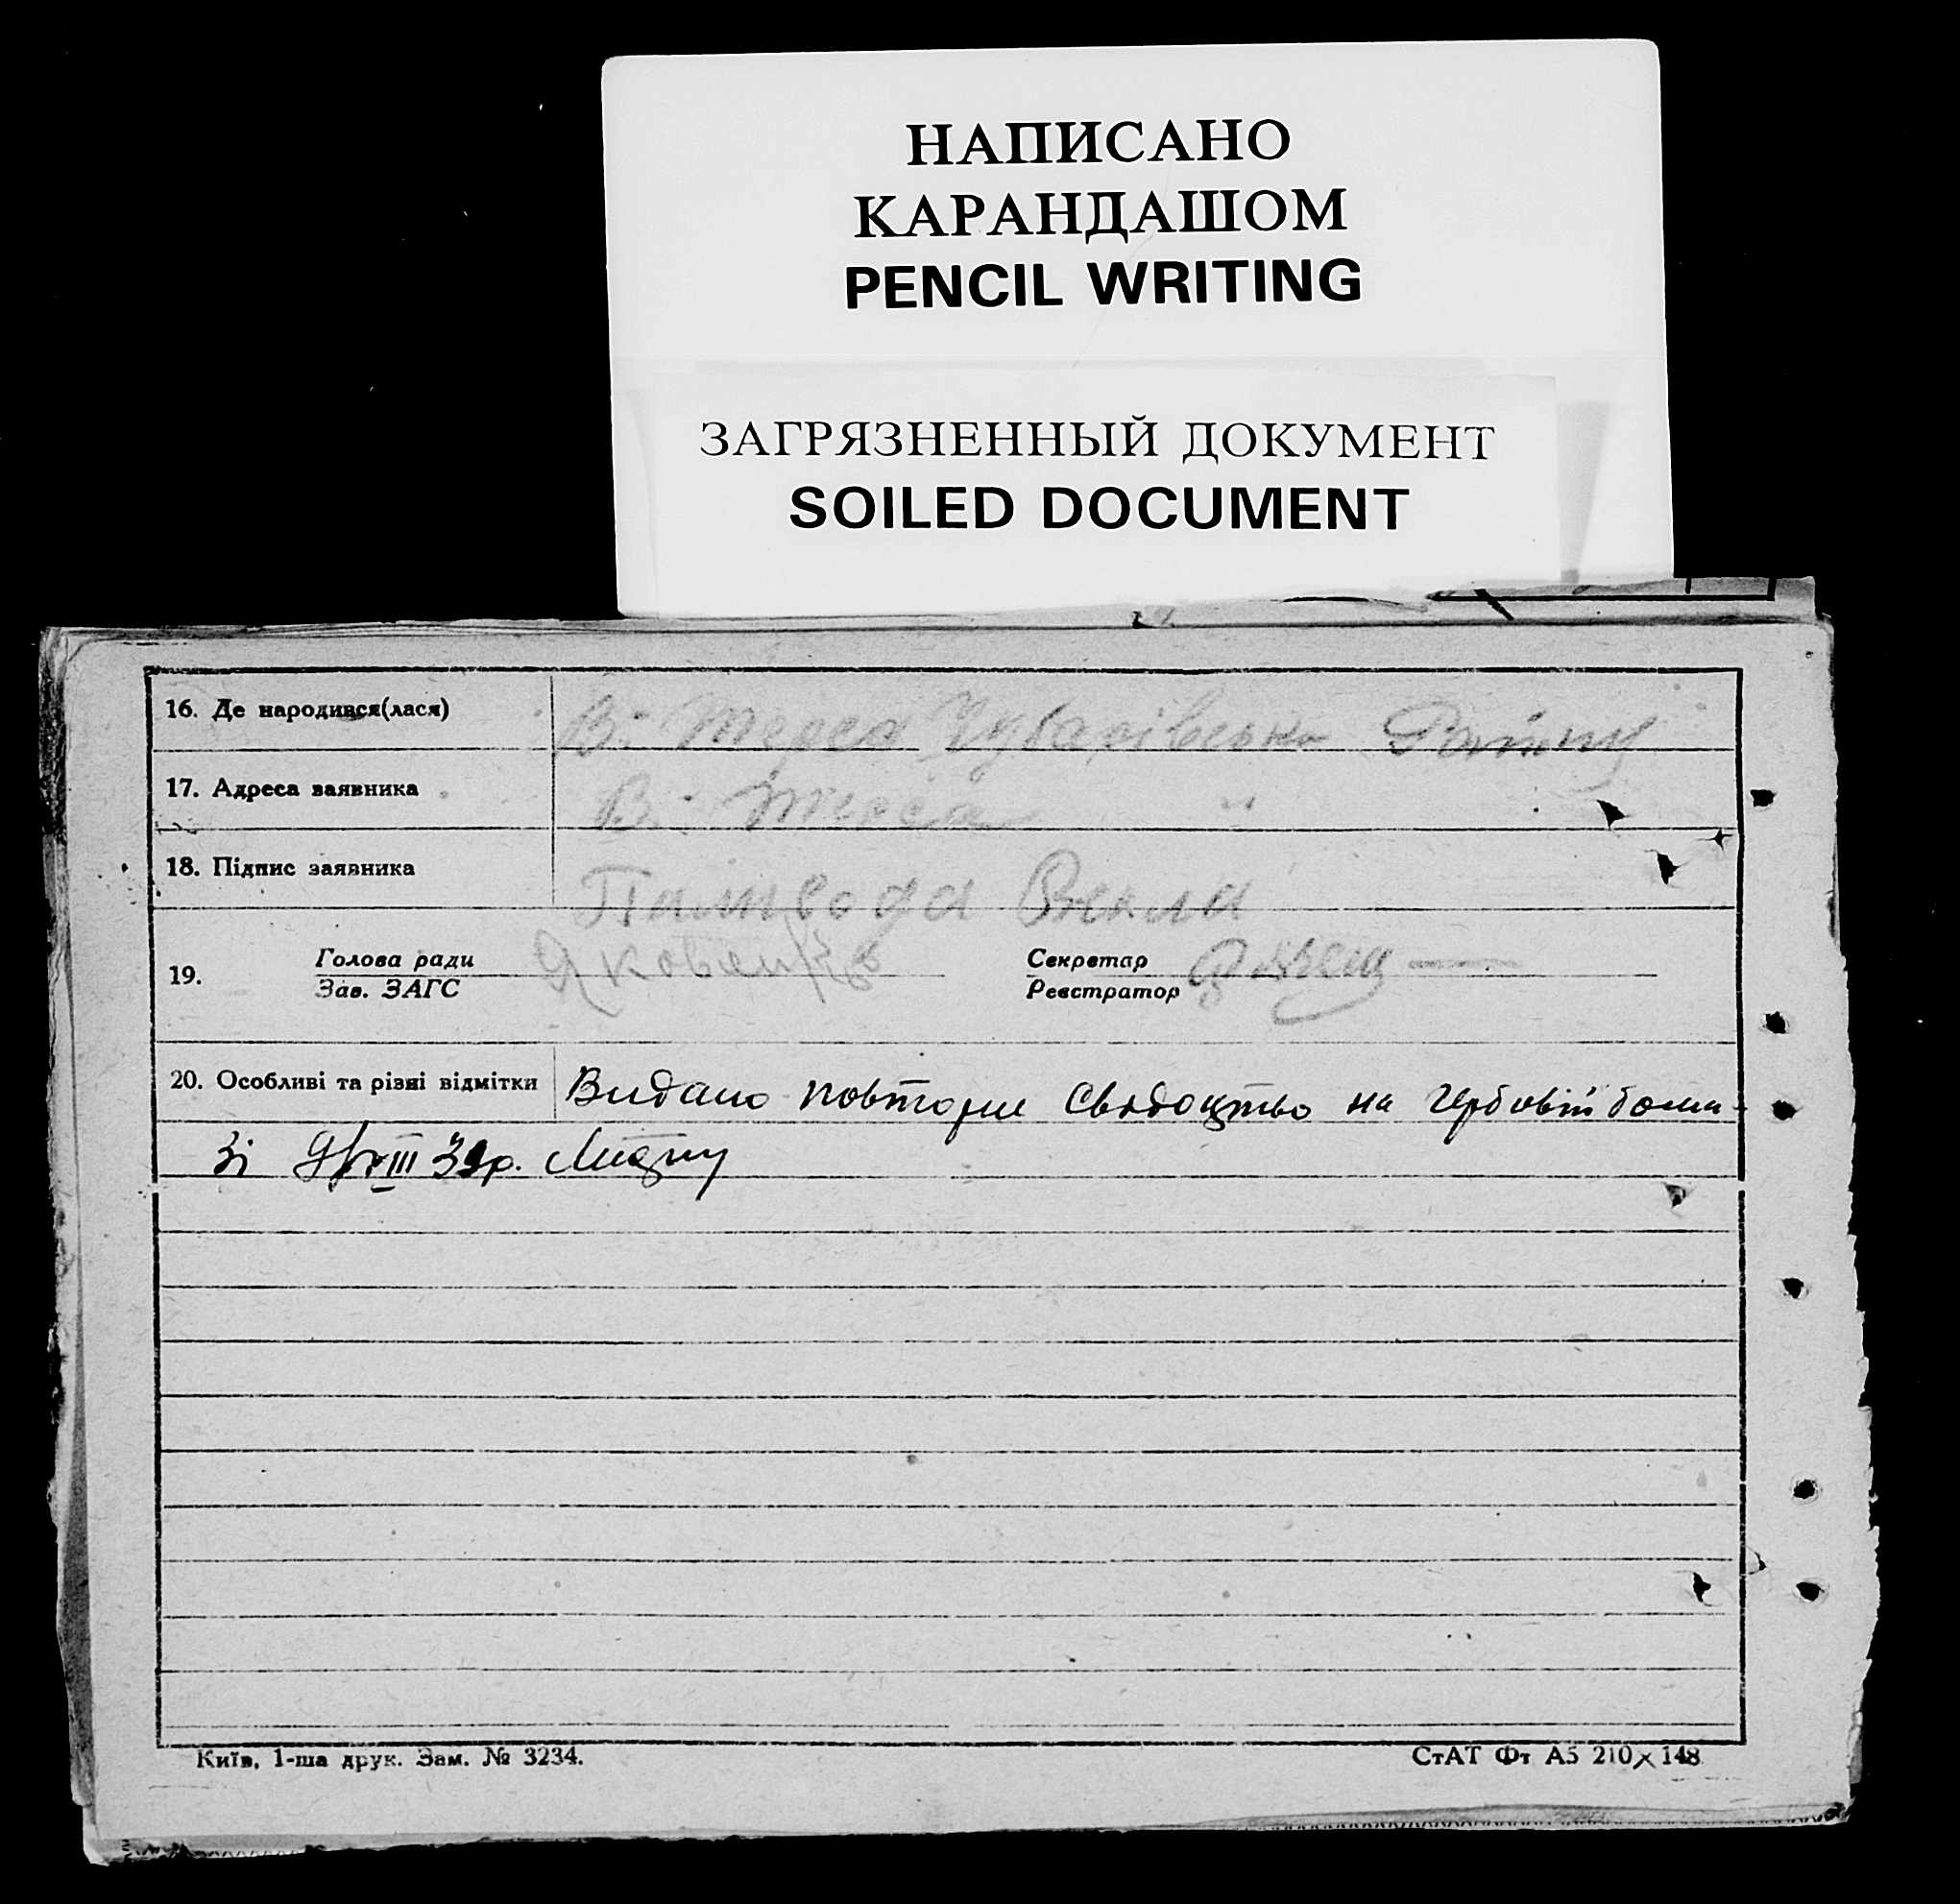 НАПИСАНО
КАРАНДАШОМ
PENCIL WRITING
ЗАГРЯЗНЕННЫЙ ДОКУМЕНТ
SOILED DOCUMENT
16. Де народився(лася) В: Терса Чубарівсько
17. Адреса заявника В: Терса "
18. Підпис заявника Векла
19. Голова ради Яковенко Секретар
Зав. ЗАГС Реєстратор
20. Особливі та різні відмітки Видано повторне свядоцтво на гербовій
Київ, 1-ша друк. Зам. № 3234. СтАТ Фт А5 210×148